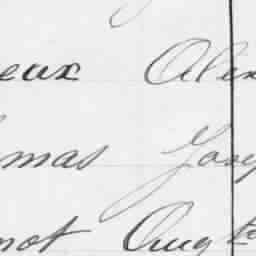 eux Alex
mas Jose
not Augte